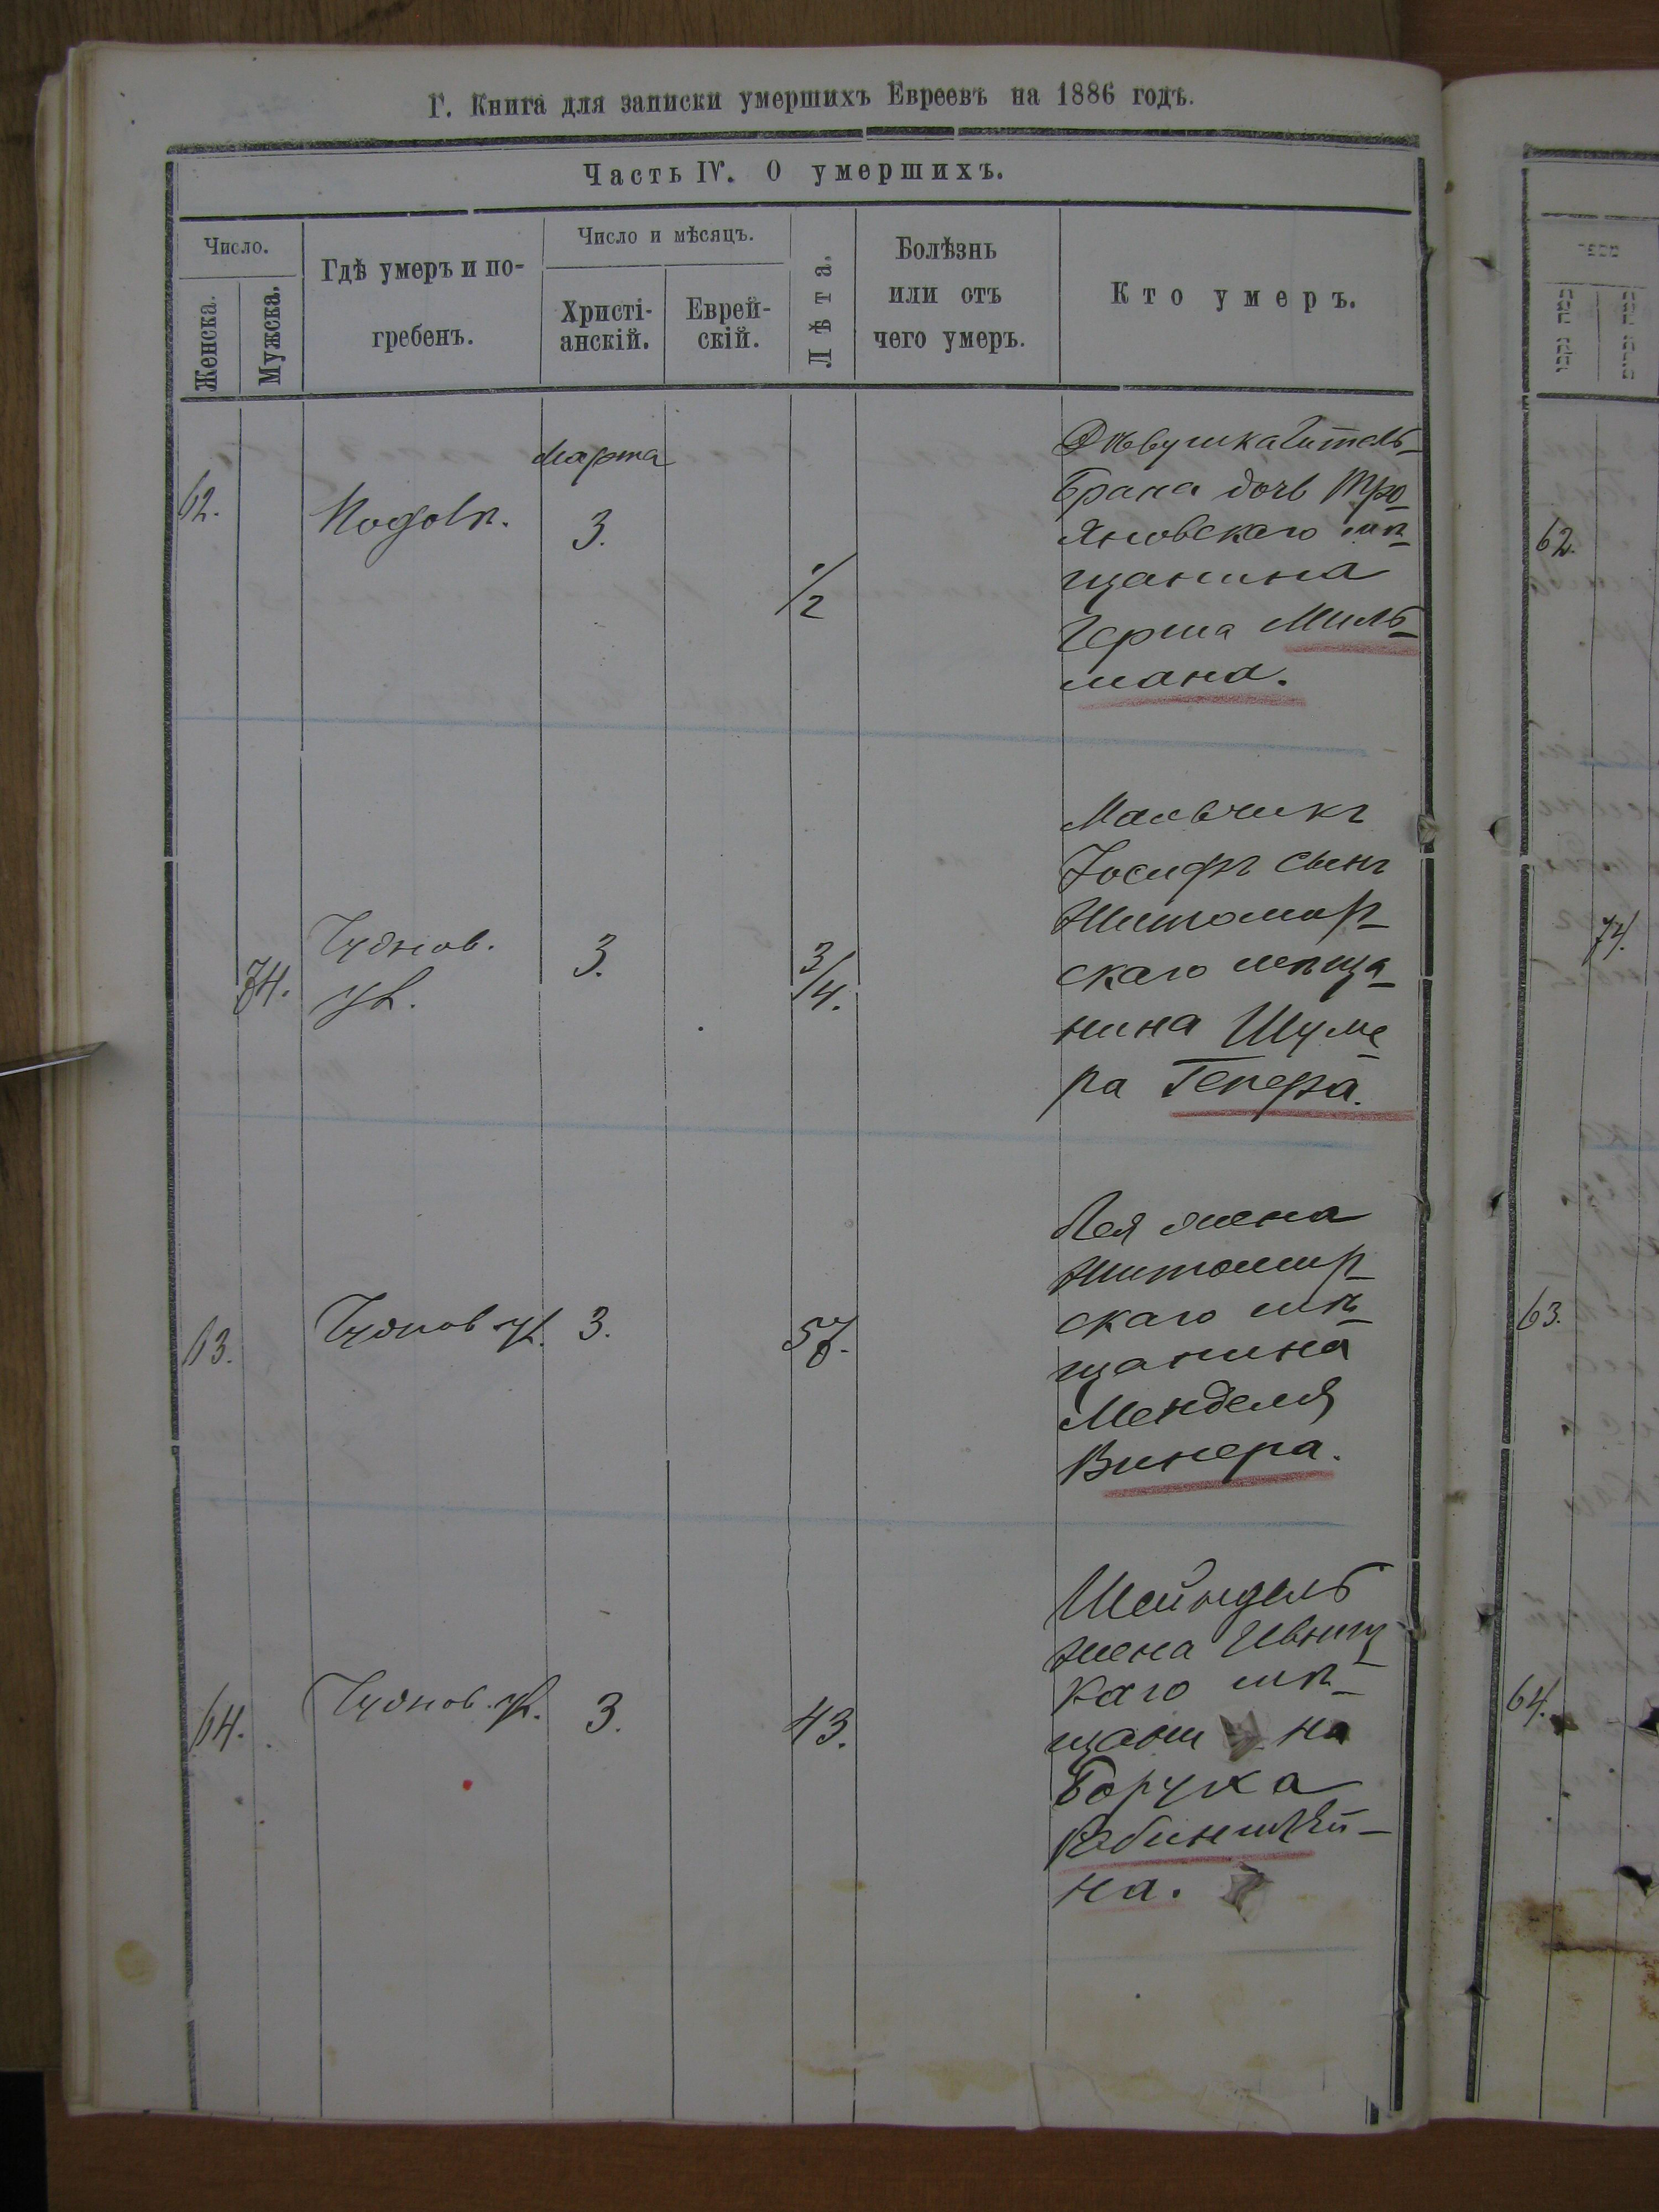 Г. Книга для записки умершихъ Евреевъ на 1886 годъ.
Часть IV. О умершихъ.
Число.
Женска.
Мужска.
Гдѣ умеръ и по-
гребенъ.
Число и мѣсяцъ.
Христі-
анскій.
Еврей-
скій.
Лѣта.
Болѣзнь
или отъ
чего умеръ.
Кто умеръ.
62.
Марта
3.
1/2
Дѣвушка Гитель-
Брана дочь Тро-
яновскаго мѣ-
щанина
Герша Миль-
мана.
74.
Чуднов.
ул.
3.
3/4.
Мальчикъ
Іосифъ сынъ
Житомир-
скаго мѣща-
нина Шуме-
ра Гепера.
63.
Чуднов. ул.
3.
57.
Лея жена
Житомир-
скаго мѣ-
щанина
Менделя
Винера.
64.
Чуднов. ул.
3.
43.
Шейндель
жена Ивниц-
каго мѣ-
щани на
Боруха
Рабинштей-
на.
62.
74.
63.
64.